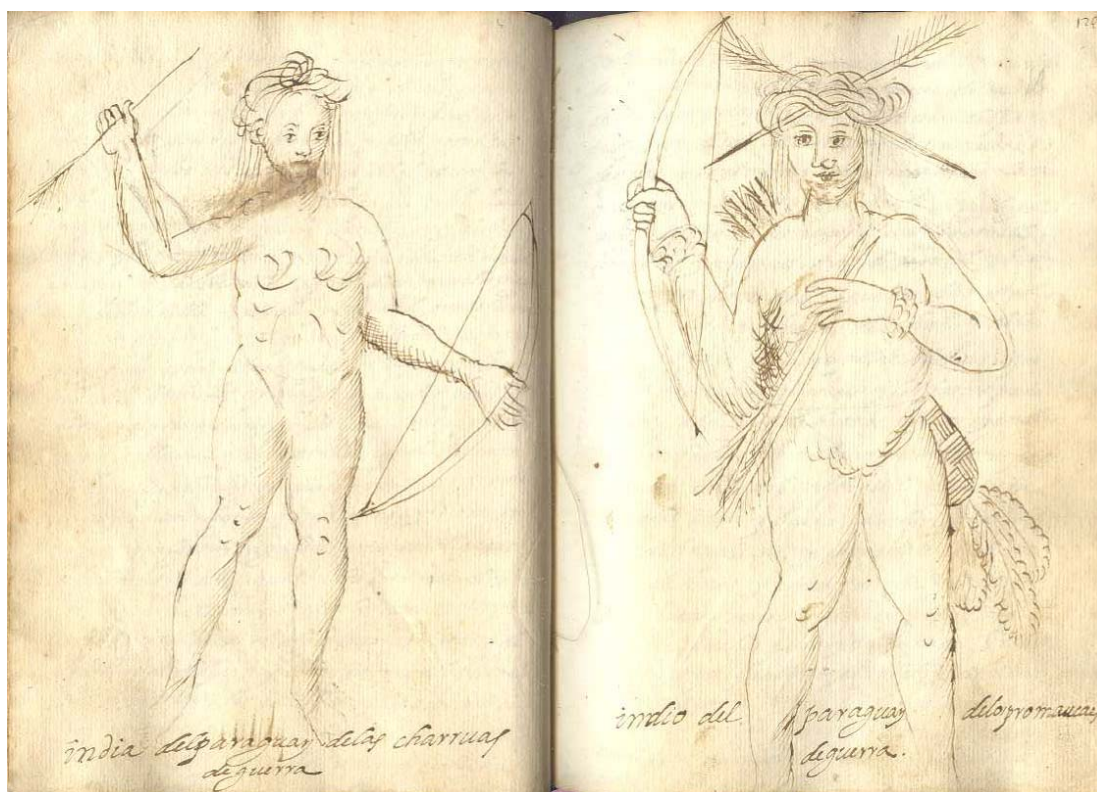 india del paraguay de las charruas
de guerra
indio del paraguay delos promaucaes
de guerra.